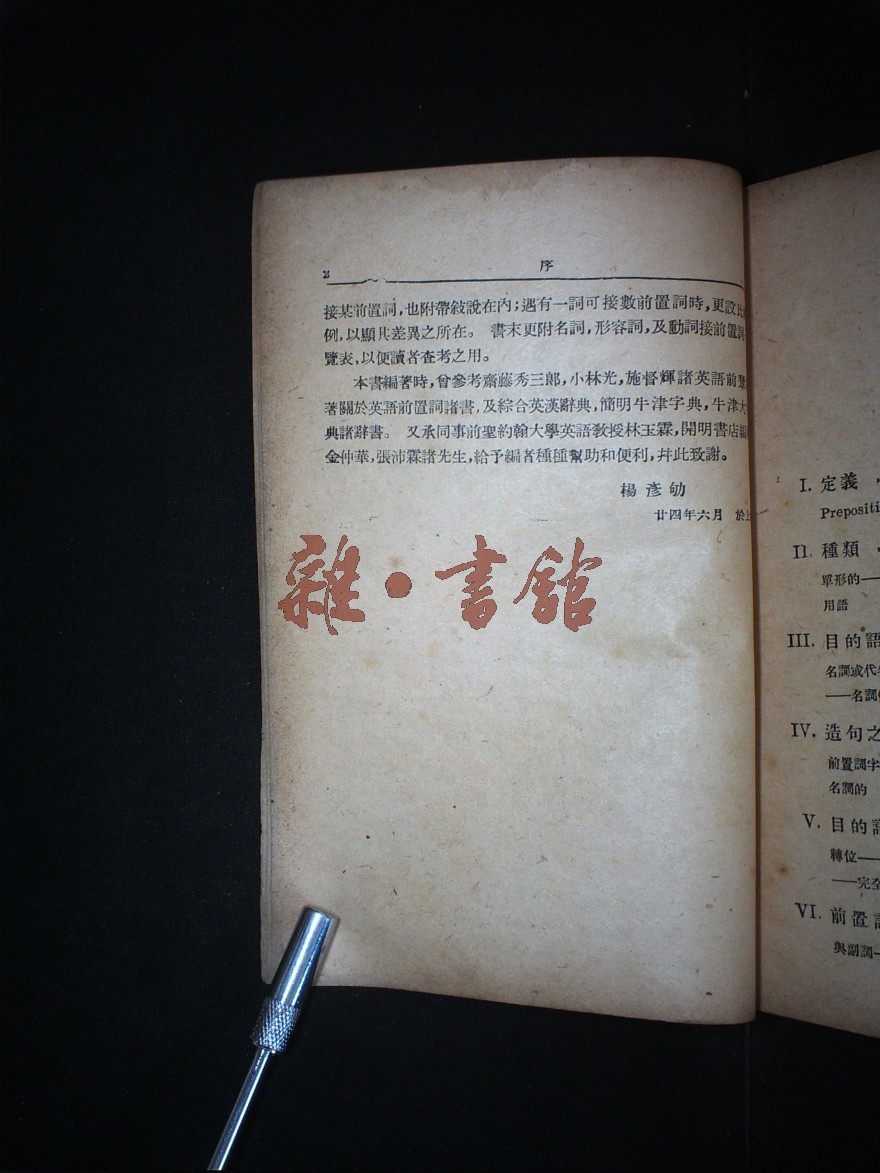 2
序
接某前置詞,也附帶敍說在內;遇有一詞可接數前置詞時,更設比
例,以顯其差異之所在。 書末更附名詞,形容詞,及動詞接前置詞
覽表,以便讀者查考之用。
本書編著時,曾參考齋藤秀三郎,小林光,施督輝諸英語前輩
著關於英語前置詞諸書,及綜合英漢辭典,簡明牛津字典,牛津大
典諸辭書。 又承同事前聖約翰大學英語教授林玉霖,開明書店編
金仲華,張沛霖諸先生,給予編者種種幫助和便利,幷此致謝。
楊彥劬
廿四年六月 於上
雜·書館
I. 定義
Prepositi
II. 種類
單形的——
用語
III. 目的語
名詞或代
——名詞
IV. 造句之
前置詞字
名詞的
V. 目的語
轉位——
——完全
VI. 前置詞
與副詞—